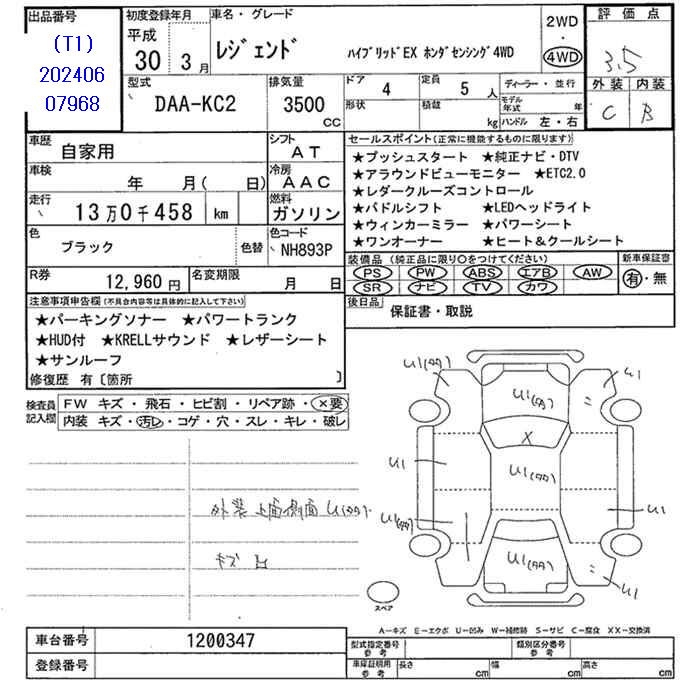 出品番号
(T1)
202406
07968
初度登録年月
平成
30 3月
車名・グレード
レジェンド ハイブリッドEX ホンダセンシング4WD
2WD
・
4WD
評価点
3.5
外装 内装
C B
型式
DAA-KC2
排気量
3500
CC
ドア 4
形状
定員 5人
積載 kg
ディーラー・並行
モデル年式 年
ハンドル 左・右
車歴
自家用
シフト
AT
車検
年 月( 日)
冷房
AAC
走行
13万0千458 km
燃料
ガソリン
色
ブラック
色替
色コード
NH893P
R券
12,960円
名変期限
月 日
セールスポイント(正常に機能するものに限ります)
★プッシュスタート ★純正ナビ・DTV
★アラウンドビューモニター ★ETC2.0
★レダークルーズコントロール
★パドルシフト ★LEDヘッドライト
★ウィンカーミラー ★パワーシート
★ワンオーナー ★ヒート&クールシート
装備品(純正品に限り○をつけてください)
PS PW ABS エアB AW
SR ナビ TV カワ
新車保証書
有・無
後日品
保証書・取説
注意事項申告欄(不具合内容等は具体的に記入して下さい)
★パーキングソナー ★パワートランク
★HUD付 ★KRELLサウンド ★レザーシート
★サンルーフ
修復歴 有〔箇所 〕
検査員
記入欄
FW キズ・飛石・ヒビ割・リペア跡・×要
内装 キズ・汚レ・コゲ・穴・スレ・キレ・破レ
外装 上面側面 U1(タタ)
キズ
U1(タタ)
U1
U1(タタ)
X
U1
U1(タタ)
U1(タタ)
U1
U1(タタ)
U1
スペア
A―キズ E―エクボ U―凹み W―補修跡 S―サビ C―腐食 XX―交換済
車台番号 1200347
登録番号
型式指定番号
参考
類別区分番号
参考
車庫証明用
参考
長さ cm 幅 cm 高さ cm